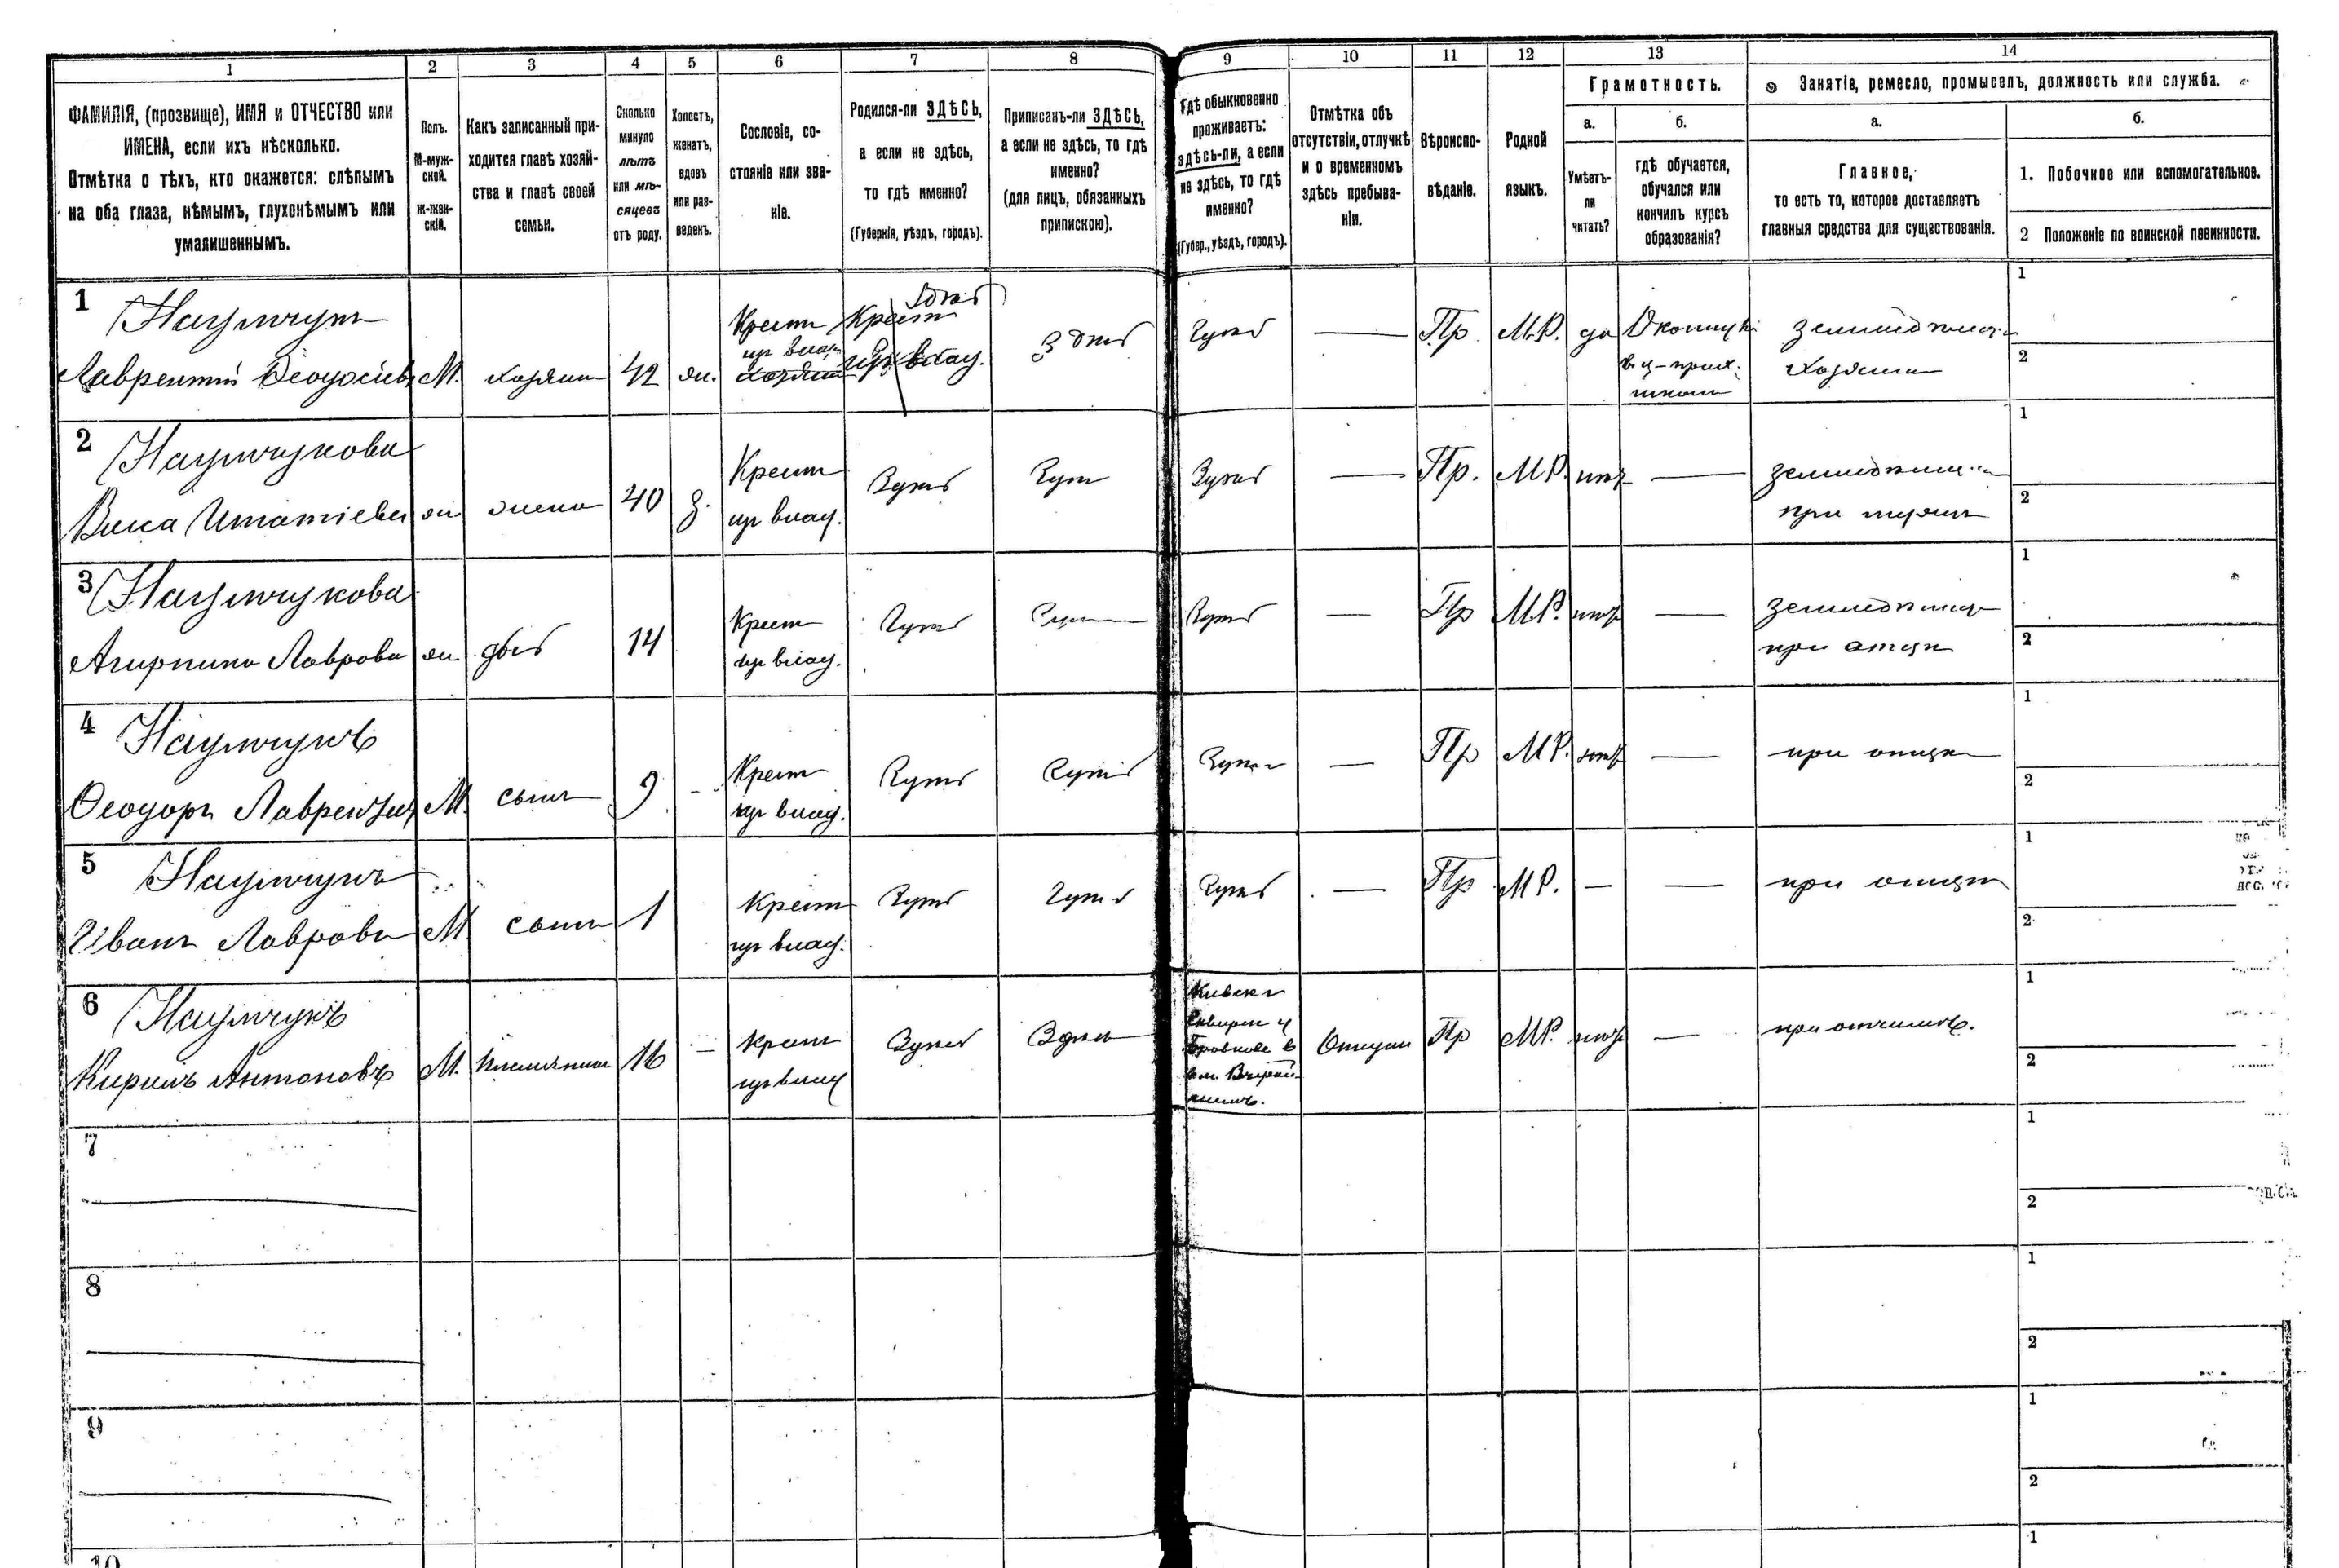 1 2 3 4 5 6 7 8 9 10 11 12 13 14
ФАМИЛІЯ, (прозвище), ИМЯ и ОТЧЕСТВО или
ИМЕНА, если ихъ нѣсколько.
Отмѣтка о тѣхъ, кто окажется: слѣпымъ
на оба глаза, нѣмымъ, глухонѣмымъ или
умалишеннымъ.
Полъ.
М-муж-
ской.
Ж-жен-
скій.
Какъ записанный при-
ходится главѣ хозяй-
ства и главѣ своей
семьи.
Сколько
минуло
лѣтъ
или мѣ-
сяцевъ
отъ роду.
Холостъ,
женатъ,
вдовъ
или раз-
веденъ.
Сословіе, со-
стояніе или зва-
ніе.
Родился-ли ЗДѢСЬ,
а если не здѣсь,
то гдѣ именно?
(Губернія, уѣздъ, городъ).
Приписанъ-ли ЗДѢСЬ,
а если не здѣсь, то гдѣ
именно?
(для лицъ, обязанныхъ
припискою).
Гдѣ обыкновенно
проживаетъ:
здѣсь-ли, а если
не здѣсь, то гдѣ
именно?
(Губер., уѣздъ, городъ).
Отмѣтка объ
отсутствіи, отлучкѣ
и о временномъ
здѣсь пребыва-
ніи.
Вѣроиспо-
вѣданіе.
Родной
языкъ.
Грамотность.
а.
Умѣетъ-
ли
читать?
б.
гдѣ обучается,
обучался или
кончилъ курсъ
образованія?
Занятіе, ремесло, промыселъ, должность или служба.
а.
Главное,
то есть то, которое доставляетъ
главныя средства для существованія.
б.
1. Побочное или вспомогательное.
2 Положеніе по воинской повинности.
1
Наумчукъ
Лаврентій Ѳеодосіевъ М. хозяинъ 42 ж.
Крест
из влад.
хозяин
здѣсь
Крест
из влад.
здѣсь здѣсь — Пр. М.Р. да
в ц-прих.
школѣ
хозяинъ
1
2
2
Наумчукова
жена 40 з.
Крест
из влад.
здѣсь здѣсь — Пр. М.Р. нѣтъ —
1
2
3
Наумчукова
Агирпина Лаврова ж 14
Крест
из влад.
здѣсь здѣсь — Пр М.Р. нѣтъ —
при отцѣ
1
2
4
Наумчукъ
Ѳеодоръ М. сынъ 9 -
Крест
из влад.
здѣсь здѣсь здѣсь — Пр М.Р. нѣтъ — при отцѣ
1
2
5
Наумчукъ
Иванъ Лавровъ М сынъ 1
Крест
из влад.
здѣсь здѣсь здѣсь — Пр М.Р. — — при отцѣ
1
2
6
Наумчукъ
Кирилъ Антоновъ М. племянник 16 —
Крест
из влад
здѣсь здѣсь
Пр М.Р. нѣтъ — при отчимѣ.
1
2
7
1
2
8
1
2
9
1
2
10
1